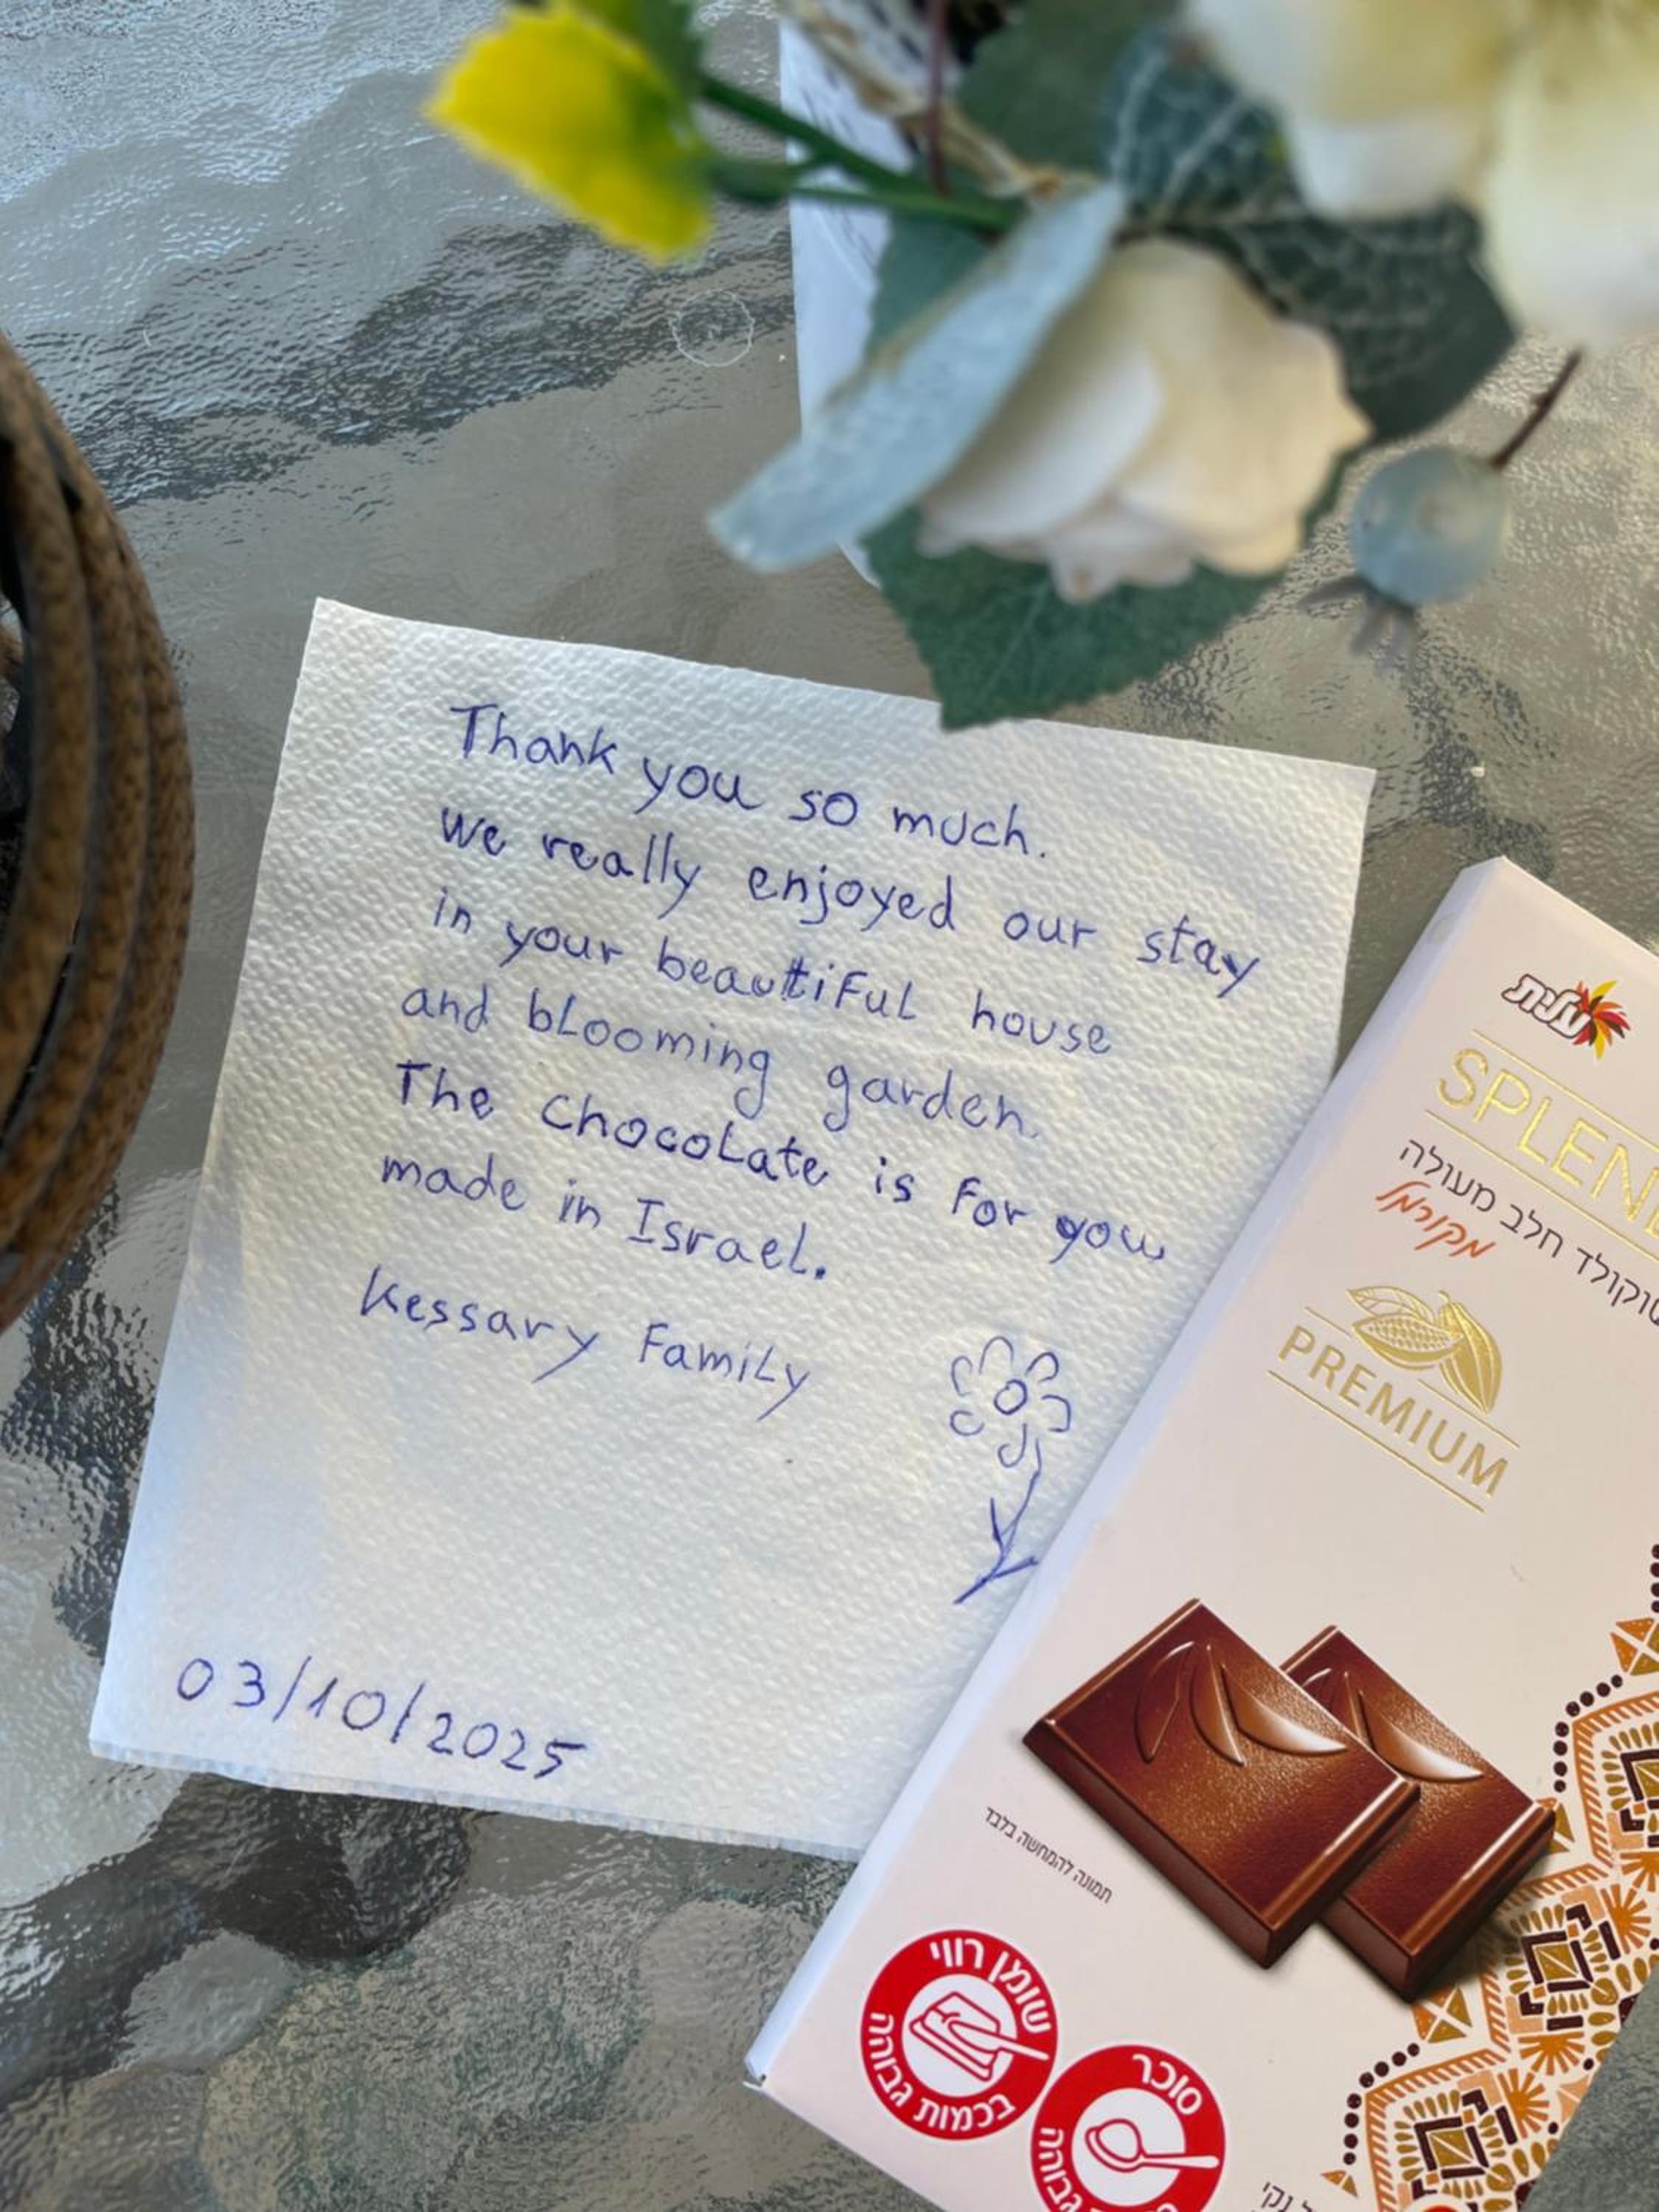 Thank you so much.
We really enjoyed our stay
in your beautiful house
and blooming garden.
The chocolate is for you
made in Israel.
Kessary Family
03/10/2025
עלית
SPLEN
שוקולד חלב מעולה
מקורמל
PREMIUM
תמונה להמחשה בלבד
שומן רווי
בכמות גבוהה
סוכר
גבוהה